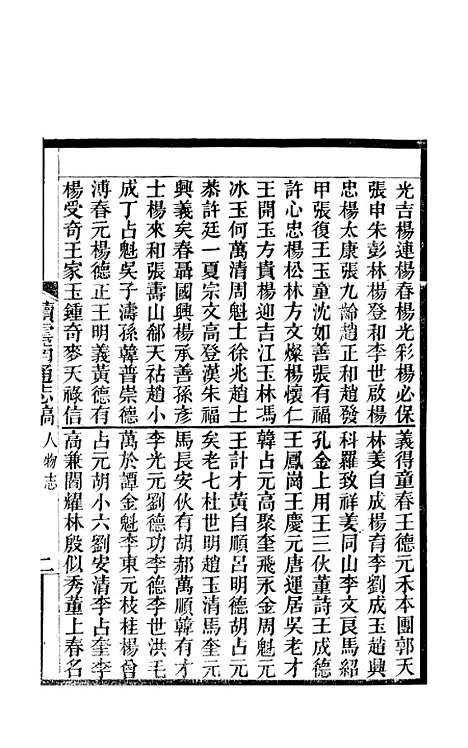 光吉楊連楊春楊光彩楊必保義得童春王德元禾本團郭天
張申朱彭林楊登和李世啟楊林姜自成楊育李劉成玉趙興
忠楊太康張九論趙正和趙發科羅致祥姜同山李文良馬紹
甲張復王玉童沈如善張有福孔金上用王三伙董詩王成德
許心忠楊松林方文燦楊懷仁王鳳崗王慶元唐運居吳老才
王開玉方貴楊迎吉江玉林馮韓占元高聚奎飛永金周魁元
冰玉何萬清周魁士徐兆趙士王計才黃自順呂明德胡占元
恭許廷一夏宗文高登漢朱福矣老七杜世明趙玉清馬奎元
興義矣春聶國興楊承善孫彥馬長安伙有胡郝萬順韓有才
士楊來和張壽山郗天祜趙小李光元劉德功李德李世洪毛
成丁占魁吳子濤孫韓普崇德萬於譚金魁李東元枝桂楊曾
溥春元楊德正王明義黃德有占元胡小六劉安清李占奎李
楊受奇王家玉鍾奇麥天祿信高兼閻耀林殷似秀董上春名
續雲南通志稿 人物志 二